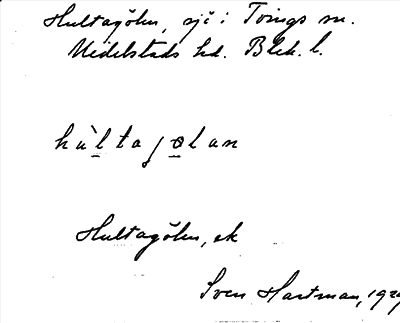 Hultagölen, sjö i Tvings sn.
Medelstads hd. Blek. l.
hùltagølan
Hultagölen, ek
Sven Hartman, 1929